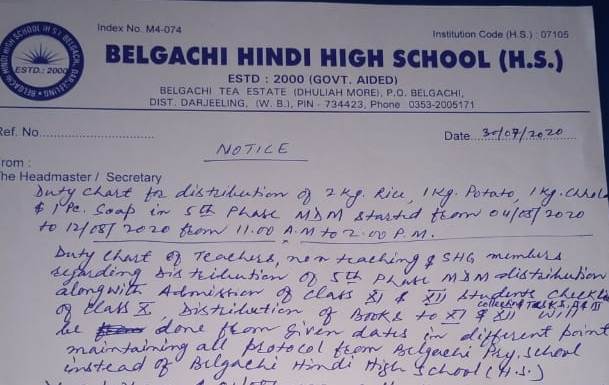 Index No. M4-074
Institution Code (H.S.) : 07105
BELGACHI HINDI HIGH SCHOOL (H.S.)
ESTD : 2000 (GOVT. AIDED)
BELGACHI TEA ESTATE (DHULIAH MORE), P.O. BELGACHI,
DIST. DARJEELING, (W. B.), PIN - 734423, Phone 0353-2005171
ESTD.: 2000
Ref. No.
Date 30/07/2020
NOTICE
From :
The Headmaster / Secretary
Duty Chart for distribution of 2 Kg. Rice, 1 Kg. Potato, 1 Kg. Chhola
& 1 Pc. Soap in 5th Phase MDM started from 04/08/2020
to 12/08/2020 from 11.00 A.M to 2.00 P.M.
Duty Chart of Teachers, non teaching & SHG members
regarding Distribution of 5th Phase MDM distribution
alongwith Admission of Class XI & XII Students Checklist
of Class X, Distribution of Books to XI & XII will
be done from given dates in different point
maintaining all protocol from Belgachi Pry. School
instead of Belgachi Hindi High School (H.S.)